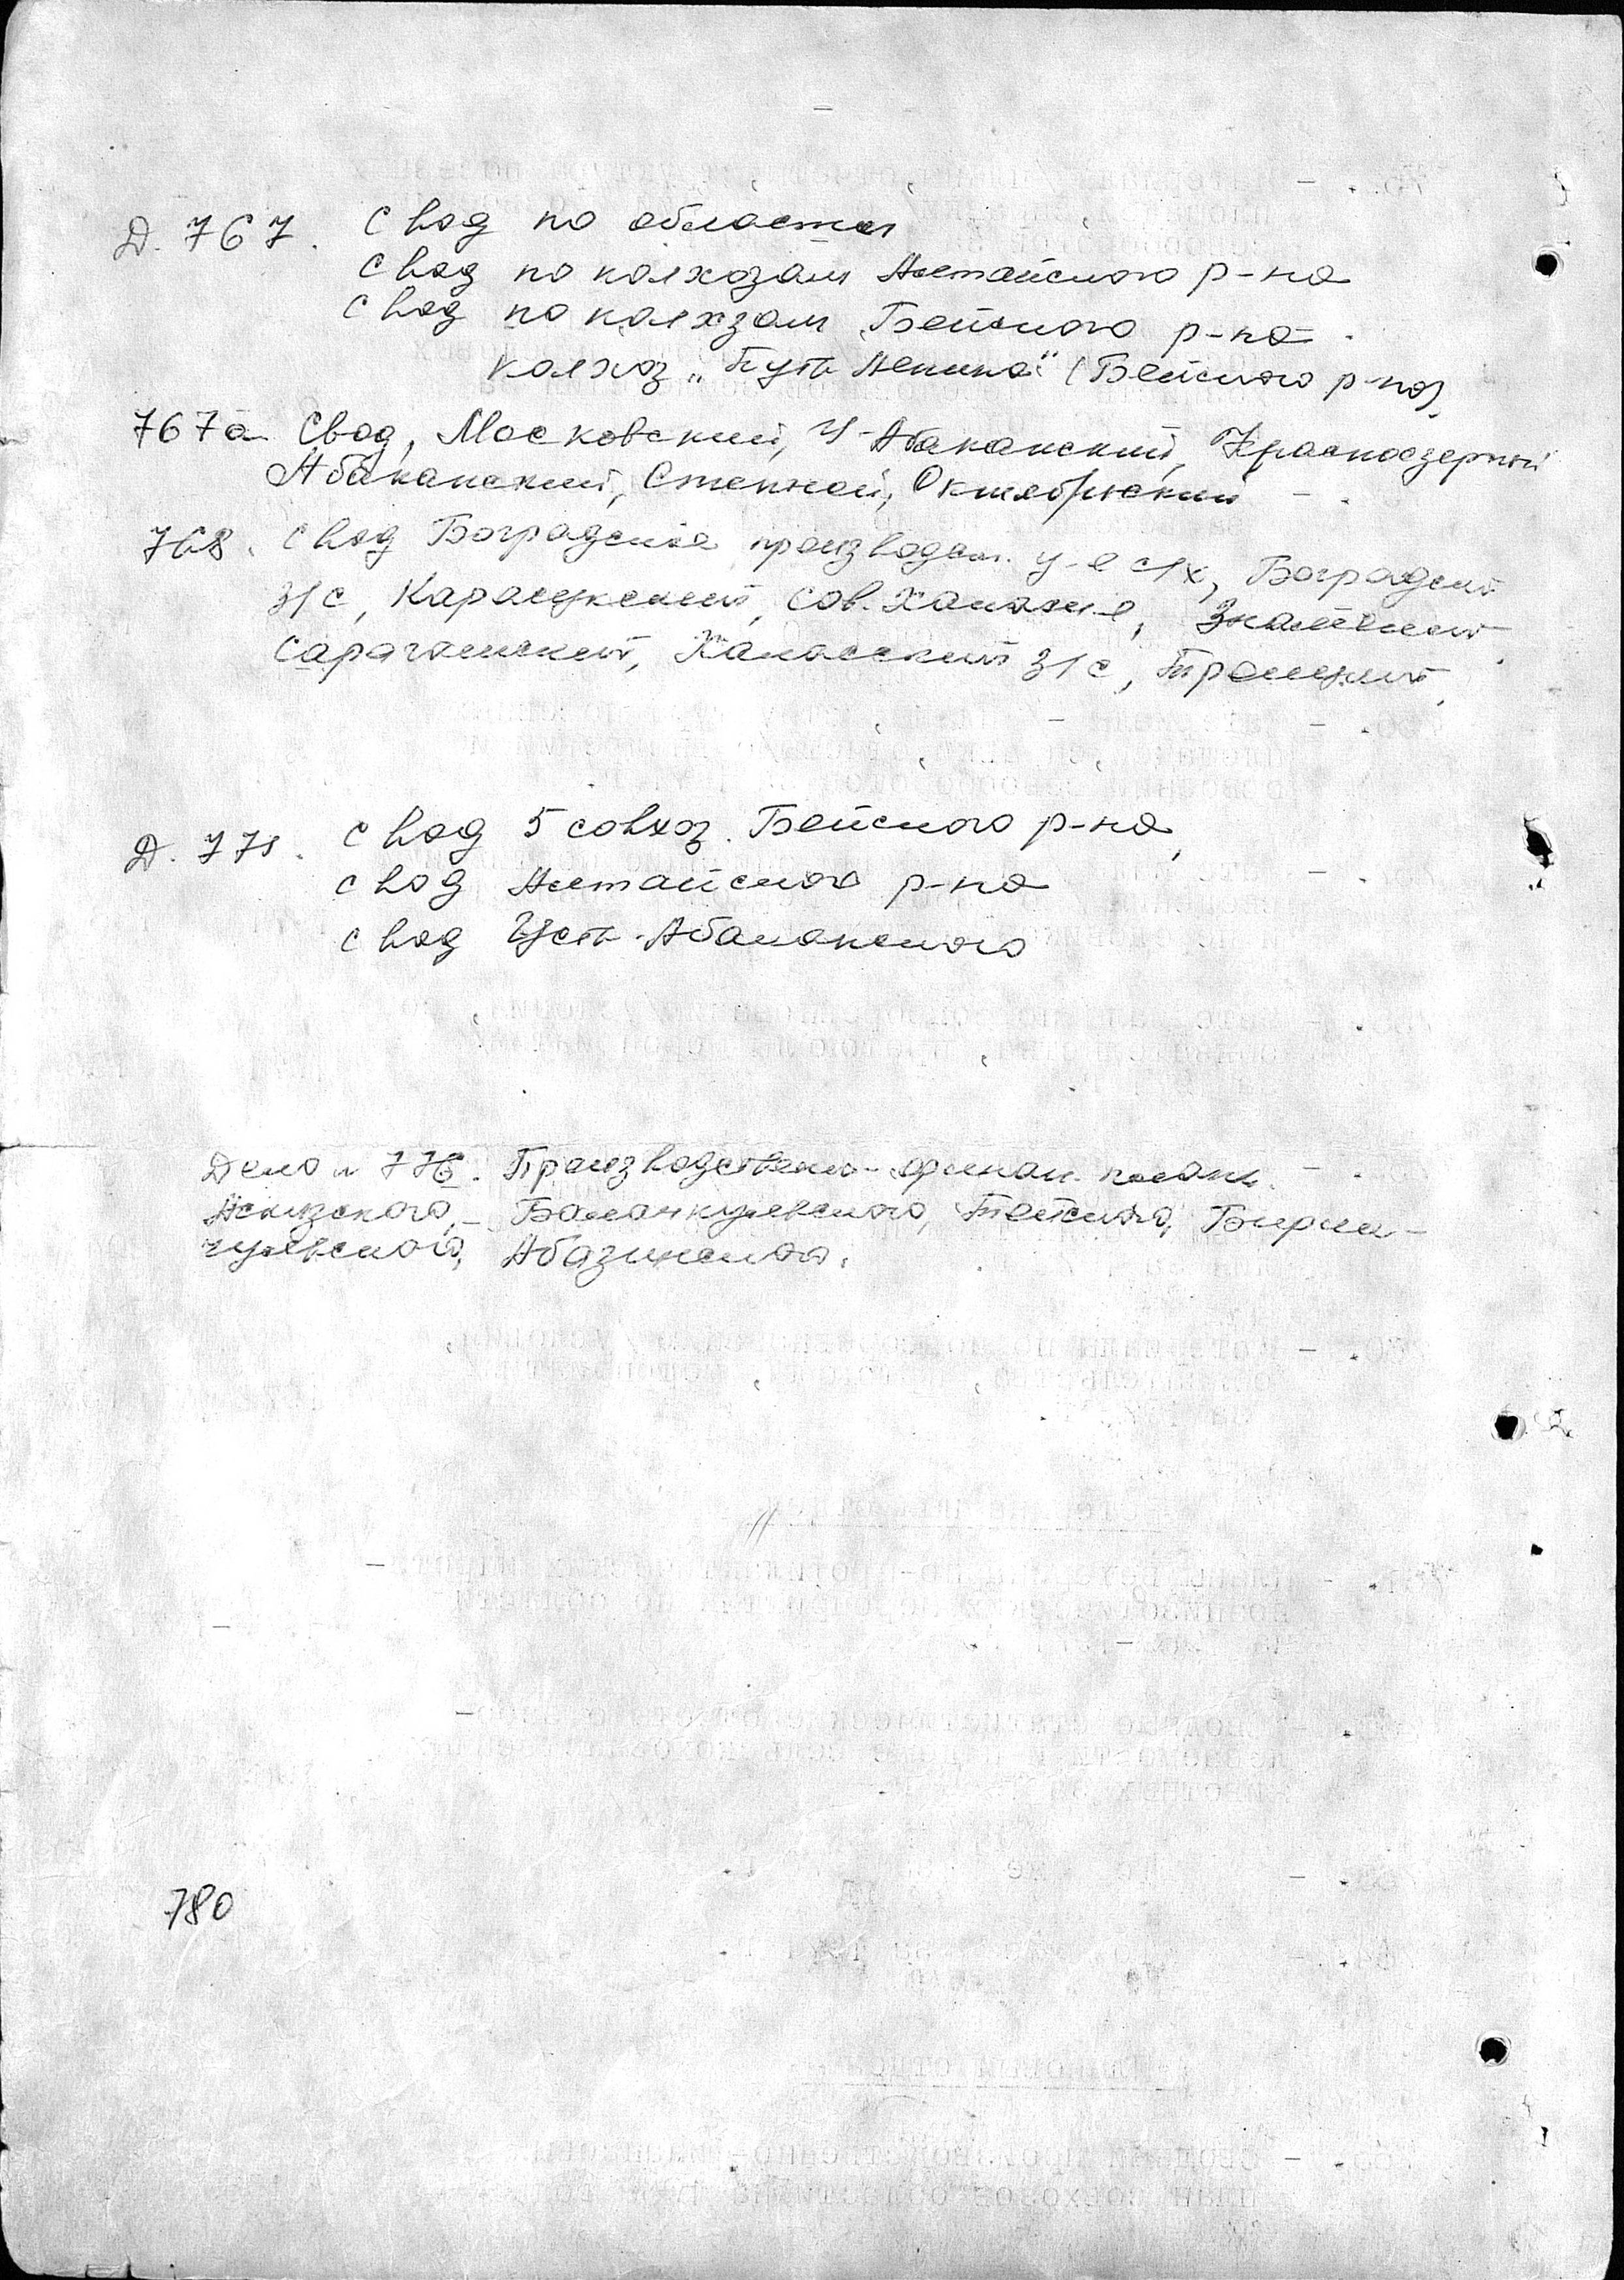 Д. 767. Свод по области
Свод по колхозам Алтайского р-на
Свод по колхзам Бейского р-на.
колхоз „Путь Ленина" (Бейского р-на).
767а Свод, Московский, У-Абаканский, Красноозерный
Абаканский, Степной, Октябрьский
768. Свод Боградское производст. у-е с/х, Боградский
з/с, Карасукский, Сов. Хакасия, Знаменский
Сарагашский, Хакасский з/с, Троицкий,
Д. 771. Свод 5 совхоз. Бейского р-на,
свод Алтайского р-на
свод Усть-Абаканского
Дело № 776. Производственно-финан. планы.
Аскизского, Балыксинского, Тейского, Бирик-
чульского, Абазинского.
780